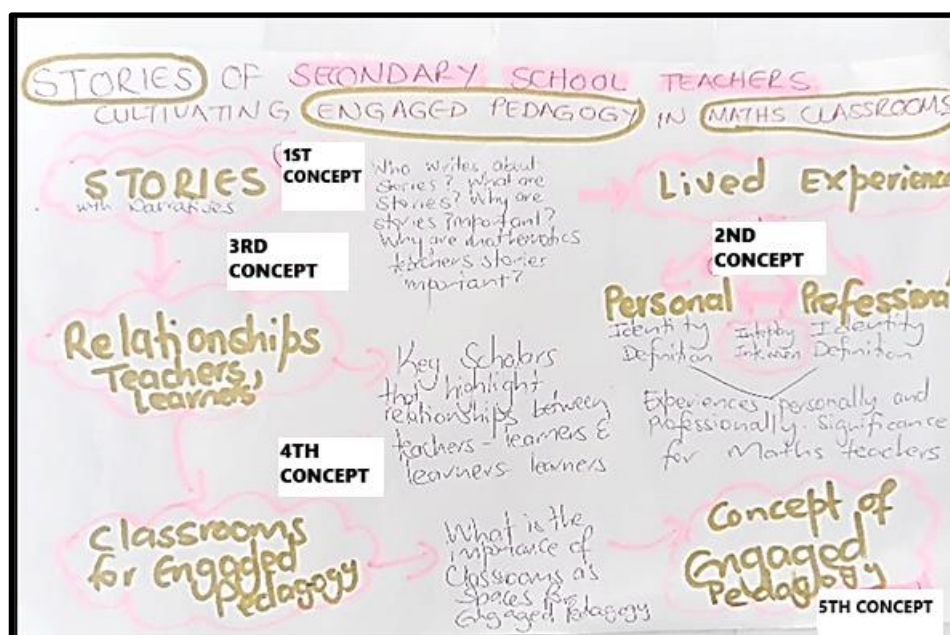 STORIES OF SECONDARY SCHOOL TEACHERS
CULTIVATING ENGAGED PEDAGOGY IN MATHS CLASSROOMS
STORIES
with Narratives
1ST
CONCEPT
Who writes about
stories? What are
stories? Why are
stories important?
Why are mathematics
teachers stories
mportant?
Lived Experienc
3RD
CONCEPT
2ND
CONCEPT
Relationships
Teachers,
Learners
Key Scholars
that highlight
relationships between
teachers - learners &
learners - learners
Personal
Identity
Definition
Profession
Identity
Definition
Experiences personally and
professionally. Significance
for Maths teachers
4TH
CONCEPT
Classrooms
for Engaged
Pedagogy
What is the
importance of
Classrooms as
Spaces for
Engaged Pedagogy
Concept of
Engaged
Pedagogy
5TH CONCEPT